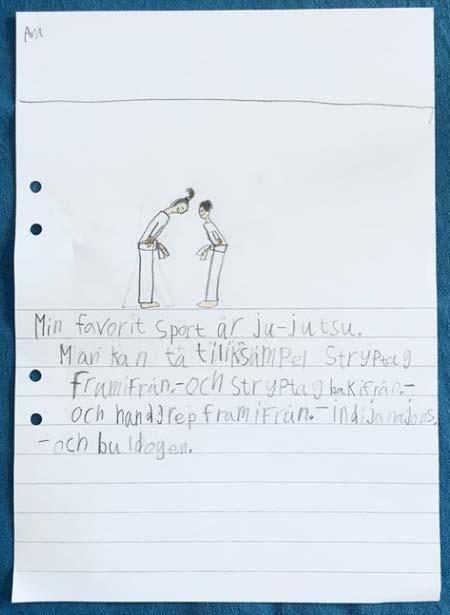 Min favorit sport är ju-jutsu.
Man kan ta tilliksämpel stryptag
framifrån.-och stryptag bakifrån.-
och handgrep framifrån.-indijanajons.
-och buldogen.